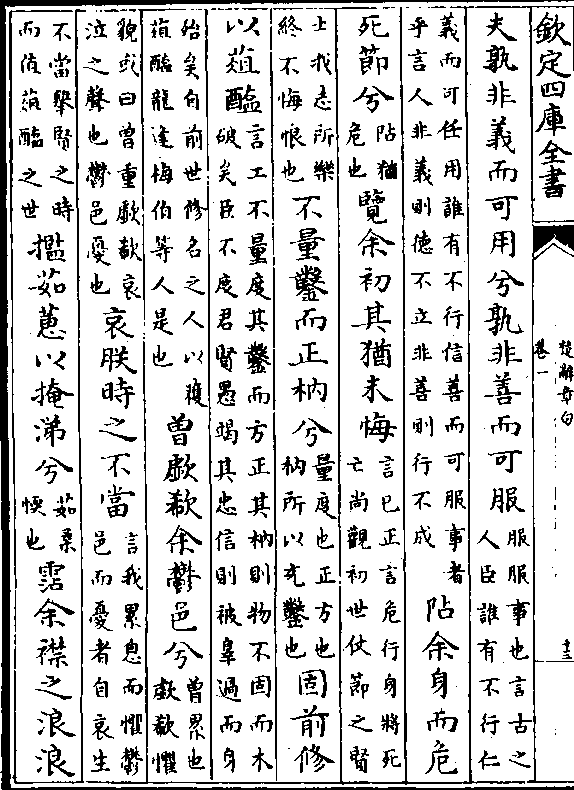 欽定四庫全書
楚辭章句
卷一
十三
夫孰非義而可用兮孰非善而可服服服事也言古之
人臣誰有不行仁
義而可任用誰有不行信善而可服事者
乎言人非義則德不立非善則行不成阽余身而危
死節兮阽猶
危也覽余初其猶未悔言已正言危行身將死
亡尚觀初世仗節之賢
士我志所樂
終不悔恨也不量鑿而正枘兮量度也正方也
枘所以充鑿也固前修
以葅醢言工不量度其鑿而方正其枘則物不固而木
破矣臣不度君賢愚竭其忠信則被辠過而身
始矣自前世修名之人以獲
葅醢龍逢梅伯等人是也曾歔欷余鬱邑兮曾累也
歔欷懼
貌或曰曾重歔欷哀
泣之聲也鬱邑憂也哀朕時之不當言我累息而懼鬱
邑而憂者自哀生
不當舉賢之時
而值葅醢之世擥茹蕙以掩涕兮茹柔
愞也霑余襟之浪浪